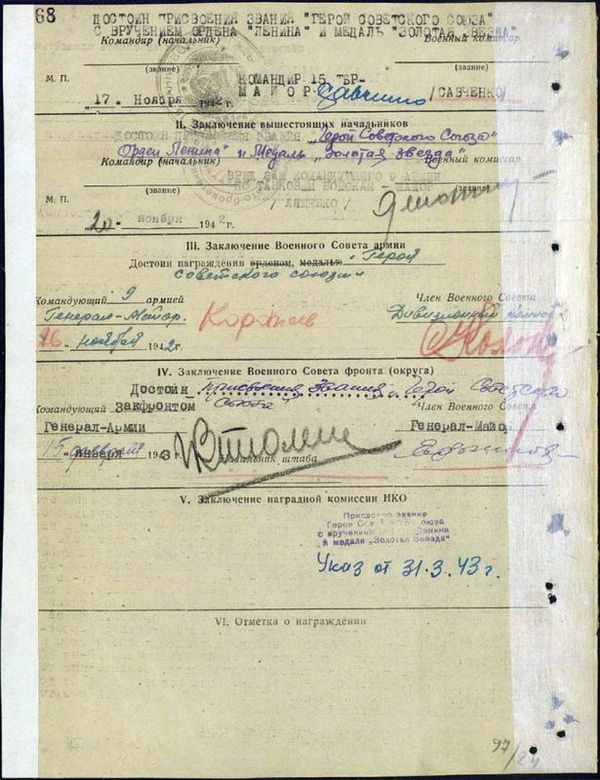 68
ДОСТОИН ПРИСВОЕНИЯ ЗВАНИЯ "ГЕРОЙ СОВЕТСКОГО СОЮЗА"
С ВРУЧЕНИЕМ ОРДЕНА "ЛЕНИНА" И МЕДАЛЬ "ЗОЛОТАЯ ЗВЕЗДА"
Командир (начальник) Военный комиссар
(звание) (звание)
М. П. КОМАНДИР 15 ТБР-
"17" Ноября 1942 г. МАЙОР Савченко /САВЧЕНКО/
II. Заключение вышестоящих начальников
ДОСТОИН ЗВАНИЯ „Герой Советского Союза"
Орден Ленина" и Медаль „Золотая звезда"
Командир (начальник) Военный комиссар
ВРИД ЗАМ КОМАНДУЮЩЕГО 9 АРМИИ
(звание) ПО ТАНКОВЫМ ВОЙСКАМ - МАЙОР (звание)
М. П. / ЛЯЩЕНКО /
"20" ноября 1942 г.
III. Заключение Военного Совета армии
Достоин награждения орденом, медалью „Герой
Советского союза"
Командующий 9 армией Член Военного Совета
Генерал-Майор. Коротеев Дивизионный
26 ноября 1942 г.
IV. Заключение Военного Совета фронта (округа)
Достоин присвоения звания „Герой Советского
Союза"
Командующий Закфронтом Член Военного Совета
Генерал-Армии Генерал-Майор
"15" февраля января 1943 г. Начальник штаба
V. Заключение наградной комиссии НКО
Присвоено звание
Героя Советского Союза
с вручением Ленина
и медали „Золотая Звезда"
Указ от 31.3.43 г.
VI. Отметка о награждении
97/24